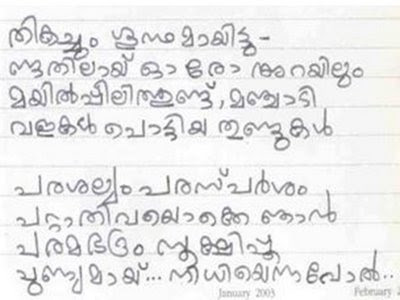 തികച്ചും ശൂന്യമായിട്ടു-
ണ്ടതിലായ് ഓരോ അറയിലും
മയിൽപ്പീലിത്തുണ്ട്, മഞ്ചാടി
വളകൾ പൊട്ടിയ തുണ്ടുകൾ
പരശല്യം പരസ്പർശം
പറ്റാതിവയൊക്കെ ഞാൻ
പരമഭദ്രം സൂക്ഷിപ്പൂ
പുണ്യമായ്... നിധിയെന്നപോൽ..
January 2003
February 2